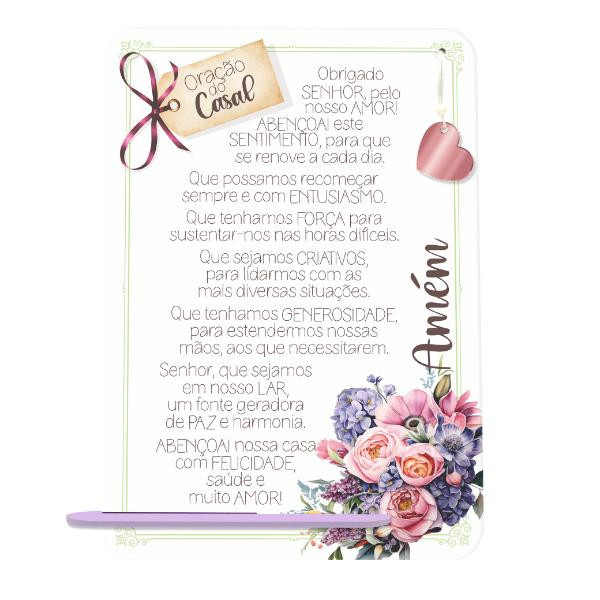 Oração
do
Casal
Obrigado
SENHOR, pelo
nosso AMOR!
ABENÇOAI este
SENTIMENTO, para que
se renove a cada dia.
Que possamos recomeçar
sempre e com ENTUSIASMO.
Que tenhamos FORÇA para
sustentar-nos nas horas difíceis.
Que sejamos CRIATIVOS,
para lidarmos com as
mais diversas situações.
Que tenhamos GENEROSIDADE,
para estendermos nossas
mãos, aos que necessitarem.
Senhor, que sejamos
em nosso LAR,
um fonte geradora
de PAZ e harmonia.
ABENÇOAI nossa casa
com FELICIDADE,
saúde e
muito AMOR!
Amém